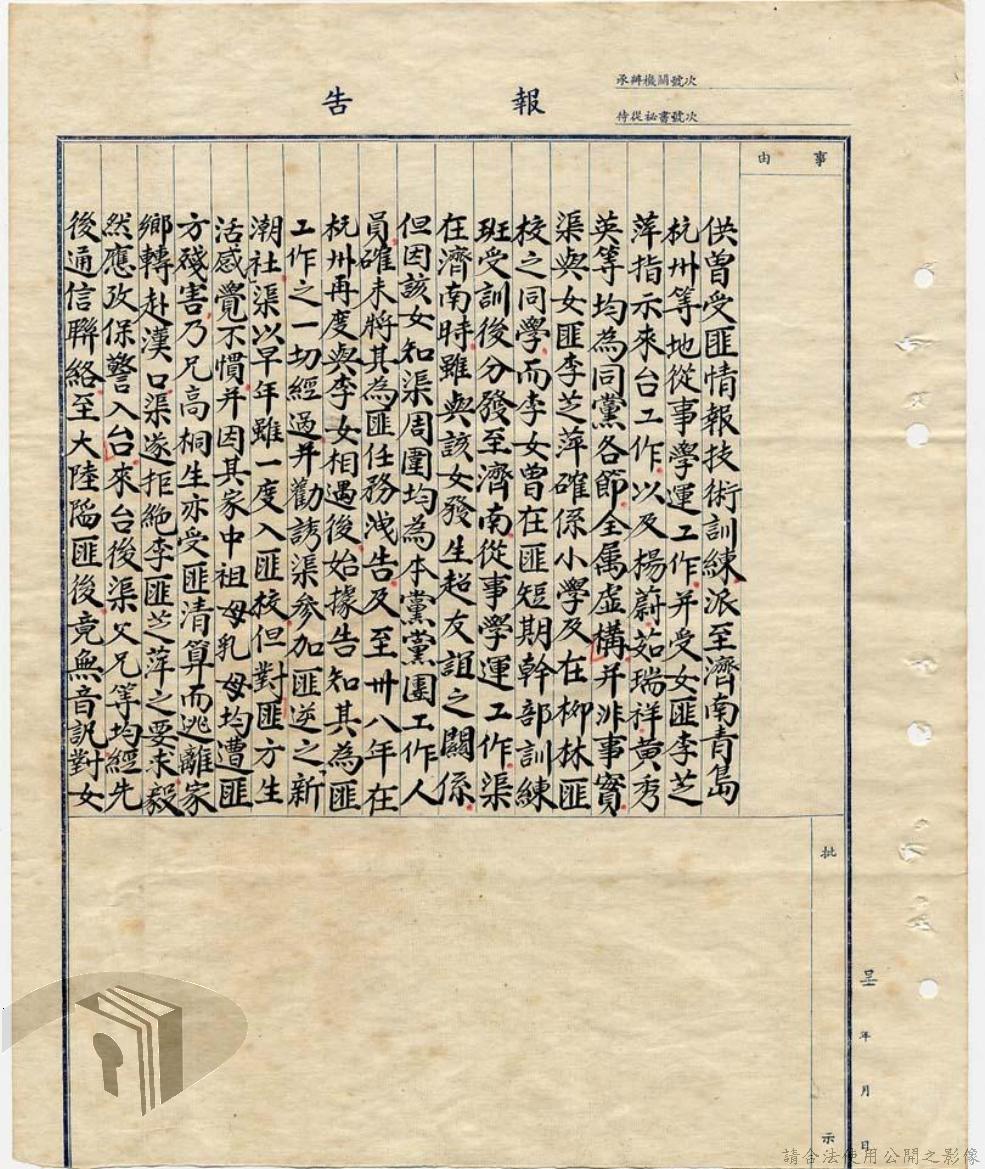 承辦機關號次
侍從祕書號次
報告
事由
供曾受匪情報技術訓練派至濟南青島
杭州等地從事學運工作并受女匪李芝
萍指示來台工作以及楊蔚茹瑞祥黃秀
英等均為同黨各節全属虛構并非事實
渠與女匪李芝萍確係小學及在柳林匪
校之同學而李女曾在匪短期幹部訓練
班受訓後分發至濟南從事學運工作渠
在濟南時雖與該女發生超友誼之關係
但因該女知渠周圍均為本黨黨團工作人
員確未將其為匪任務洩告及至卅八年在
杭州再度與李女相遇後始據告知其為匪
工作之一切經過并勸誘渠參加匪逆之新
潮社渠以早年雖一度入匪校但對匪方生
活感覺不慣并因其家中祖母乳母均遭匪
方殘害乃兄高桐生亦受匪清算而逃離家
鄉轉赴漢口渠遂拒絶李匪芝萍之要求毅
然應攷保警入台來台後渠父兄等均經先
後通信聯絡至大陸陥匪後竟無音訊對女
批示
呈
年
月
日
請合法使用公開之影像